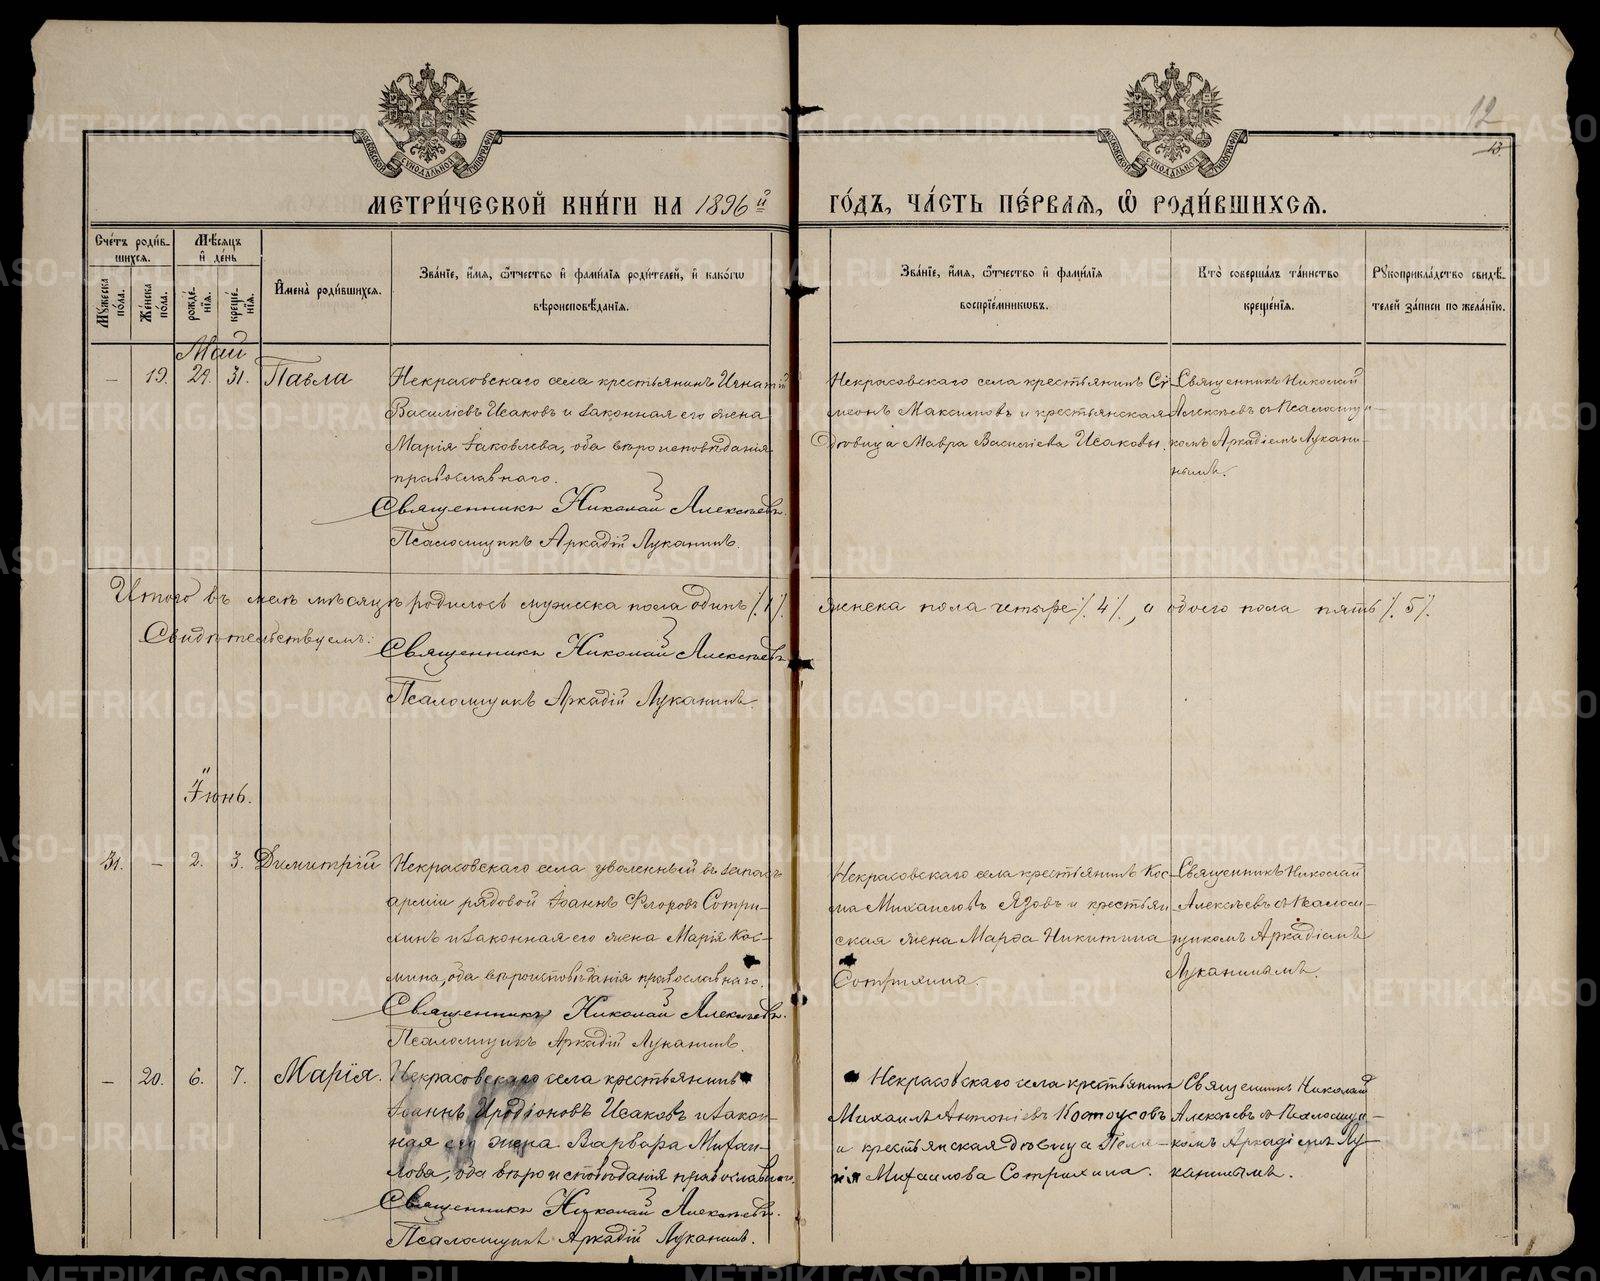 12
13.
МОСКОВСКОЙ СѴНОДАЛЬНОЙ ТИПОГРАФІИ
МОСКОВСКОЙ СѴНОДАЛЬНОЙ ТИПОГРАФІИ
МЕТРИ́ЧЕСКОЙ КНИ́ГИ НА 1896й ГО́ДЪ, ЧА́СТЬ ПЕ́РВАЯ, Ѽ РОДИ́ВШИХСЯ.
Сче́тъ роди́в-
шихся.
Мѣ́сяцъ
и҆ де́нь
Мꙋ́жеска по́ла.
Же́нска по́ла.
рожде́-
нїя.
креще́-
нїя.
И҆мена̀ роди́вшихся.
Зва́нїе, и҆́мя, ѻ҆́тчество и҆ фами́лїя роди́телей, и҆ како́гѡ
вѣроисповѣ́данїя.
Зва́нїе, и҆́мя, ѻ҆́тчество и҆ фами́лїя
воспрїе́мникѡвъ.
Кто̀ соверша́лъ та́инство
креще́нїя.
Рꙋкоприкла́дство свидѣ́-
телей за́писи по жела́нїю.
Май
– 19. 29. 31. Павла
Некрасовскаго села крестьянинъ Игнатій
Васильевъ Исаковъ и законная его жена
Марія Іаковлева, оба вѣроисповѣданія
православнаго.
Священникъ Николай Алексѣевъ.
Псаломщикъ Аркадій Луканинъ.
Некрасовскаго села крестьянинъ Си-
меонъ Максимовъ и крестьянская
дѣвица Мавра Васильева Исаковы.
Священникъ Николай
Алексѣевъ съ Псаломщи-
комъ Аркадіемъ Лукани-
нымъ.
Итого въ маѣ мѣсяцѣ родилось мужеска пола одинъ /. 1 /. женска пола четыре /. 4 /., а обоего пола пять /. 5 /.
Свидѣтельствуемъ:
Священникъ Николай Алексѣевъ
Псаломщикъ Аркадій Луканинъ.
Іюнь.
31. – 2. 3. Димитрій
Некрасовскаго села уволенный въ запасъ
арміи рядовой Іоаннъ Флоровъ Сотри-
хинъ и законная его жена Марія Кос-
мина, оба вѣроисповѣданія православнаго.
Священникъ Николай Алексѣевъ.
Псаломщикъ Аркадій Луканинъ.
Некрасовскаго села крестьянинъ Кос-
ма Михаиловъ Язовъ и крестьян-
ская жена Марѳа Никитина
Сотрихина.
Священникъ Николай
Алексѣевъ съ Псалом-
щикомъ Аркадіемъ
Луканинымъ.
– 20. 6. 7. Марія.
Некрасовскаго села крестьянинъ
Іоаннъ Иродіоновъ Исаковъ и закон-
ная его жена Варвара Михаи-
лова, оба вѣроисповѣданія православнаго.
Священникъ Николай Алексѣевъ.
Псаломщикъ Аркадій Луканинъ.
Некрасовскаго села крестьянинъ
Михаилъ Антоніевъ Костоусовъ
и крестьянская дѣвица Пела-
гія Михаилова Сотрихина.
Священникъ Николай
Алексѣевъ съ Псаломщи-
комъ Аркадіемъ Лу-
канинымъ.
METRIKI.GASO-URAL.RU